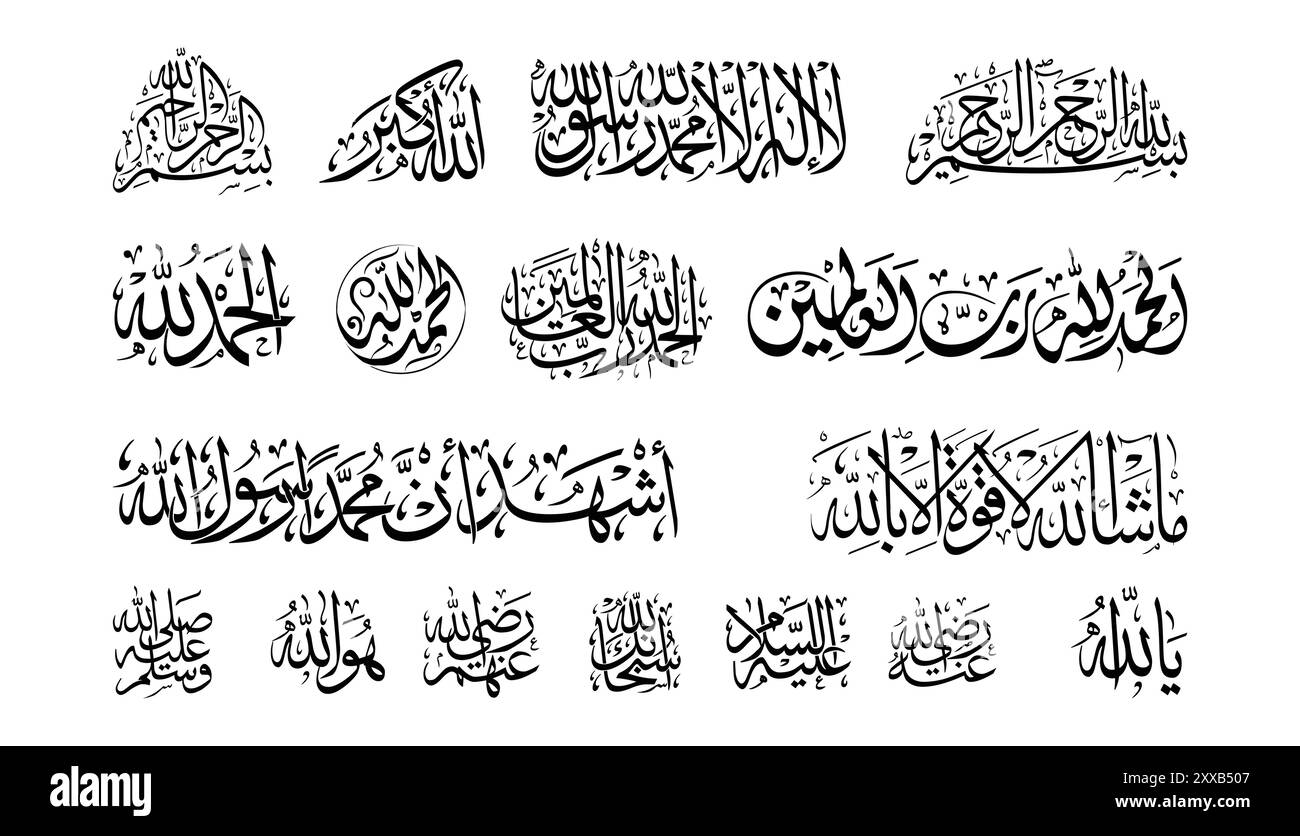 بسم الله الرحمن الرحيم
لا إله إلا الله محمد رسول الله
الله أكبر
بسم الله الرحمن الرحيم
الحمد لله رب العالمين
الحمد لله رب العالمين
الحمد لله
الحمد لله
ما شاء الله لا قوة إلا بالله
أشهد أن محمدا رسول الله
يا الله
رضي الله عنه
عليه السلام
سبحانك الله
رضي الله عنهم
هو الله
صلى الله عليه وسلم
alamy
Image ID: 2XXB507
www.alamy.com